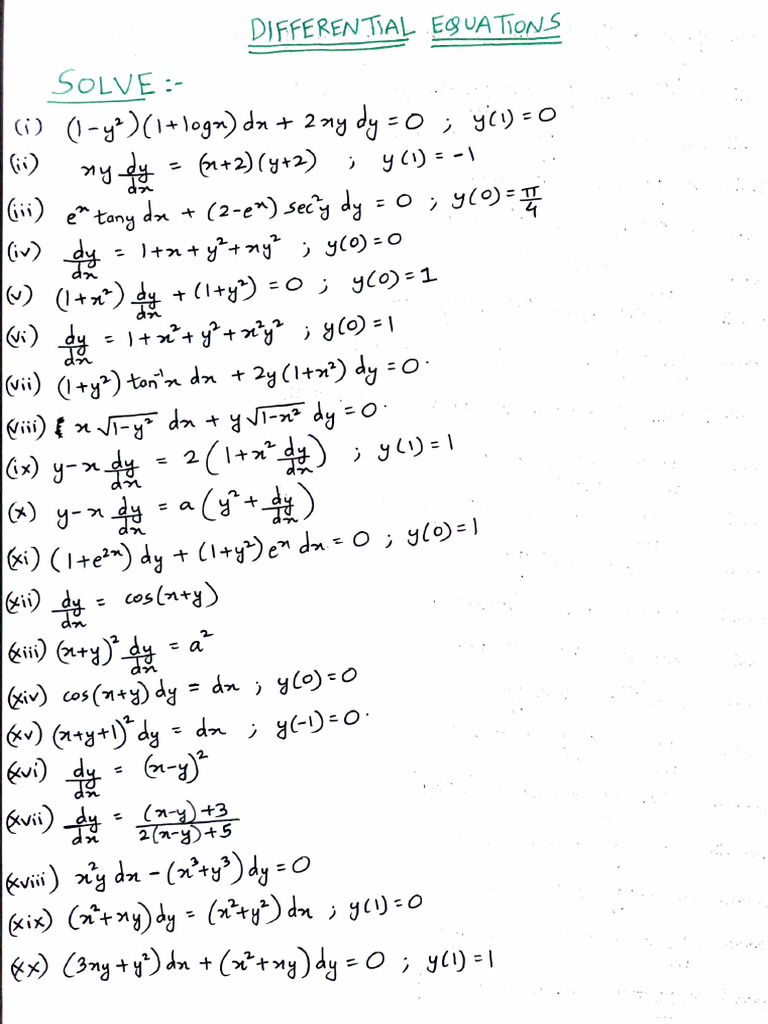 DIFFERENTIAL EQUATIONS
SOLVE :-
(i) (1-y²)(1+logx) dx + 2xy dy = 0 ; y(1) = 0
(ii) xy dy/dx = (x+2)(y+2) ; y(1) = -1
(iii) eˣ tany dx + (2-eˣ) sec²y dy = 0 ; y(0) = π/4
(iv) dy/dx = 1+x+y²+xy² ; y(0) = 0
(v) (1+x²) dy/dx + (1+y²) = 0 ; y(0) = 1
(vi) dy/dx = 1+x²+y²+x²y² ; y(0) = 1
(vii) (1+y²) tan⁻¹x dx + 2y(1+x²) dy = 0.
(viii) x √1-y² dx + y √1-x² dy = 0.
(ix) y-x dy/dx = 2(1+x² dy/dx) ; y(1) = 1
(x) y-x dy/dx = a(y²+dy/dx)
(xi) (1+e²ˣ) dy + (1+y²) eˣ dx = 0 ; y(0) = 1
(xii) dy/dx = cos(x+y)
(xiii) (x+y)² dy/dx = a²
(xiv) cos(x+y) dy = dx ; y(0) = 0
(xv) (x+y+1)² dy = dx ; y(-1) = 0.
(xvi) dy/dx = (x-y)²
(xvii) dy/dx = (x-y)+3 / 2(x-y)+5
(xviii) x²y dx - (x³+y³) dy = 0
(xix) (x²+xy) dy = (x²+y²) dx ; y(1) = 0
(xx) (3xy+y²) dx + (x²+xy) dy = 0 ; y(1) = 1